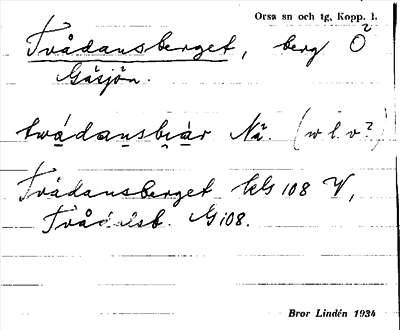 Orsa sn och tg, Kopp. l.
Tvådansberget, berg Ö
Gåsjön.
twádansbiär Nä. (w l. v?)
Tvådansberget kls 108 V,
Tvåd sb. G 108.
Bror Lindén 1934